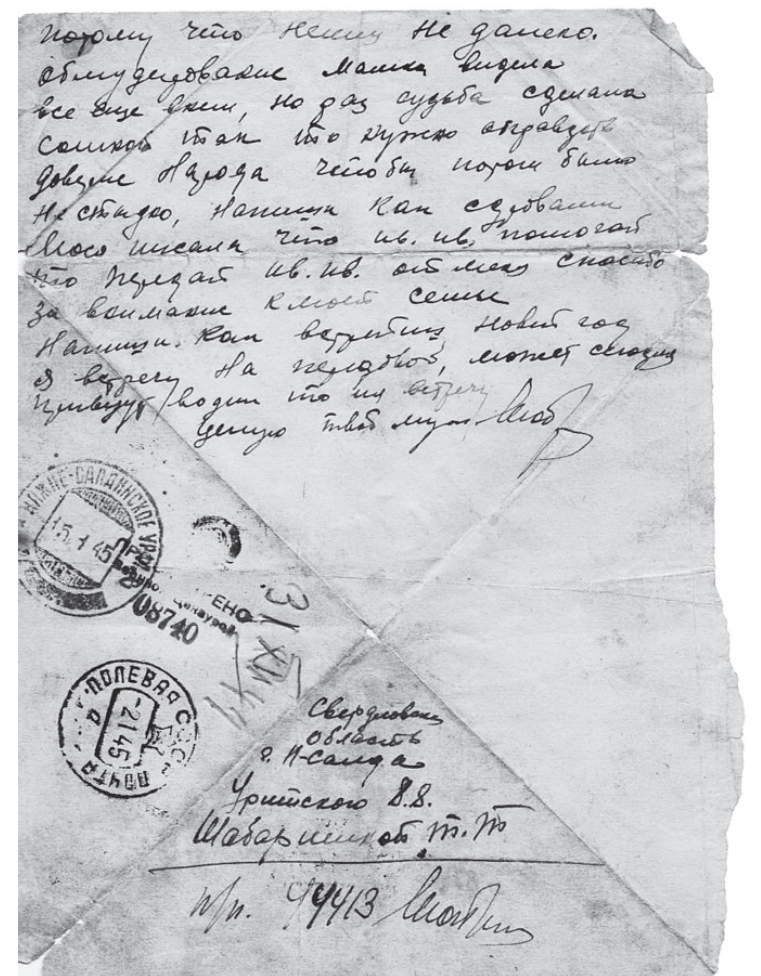 потому что немец не далеко.
обмундирование Машка видела
все еще, но раз судьба сделана
так что нужно оправдать
доверие Народа чтобы потом было
не стыдно, Напиши как
писала что ив. ив. помогает
то передай ив. ив. от меня спасибо
за внимание к моей семье
Напиши. Как встретишь новый год
я встречу На передовой, может сегодня
привезут водки то их встречу
целую твой муж
НИЖНЕ-САЛДИНСКОЕ УРАЛ
15.1.45
ПРОСМОТРЕНО
Военной Цензурой
08740
31 XII 44
ПОЛЕВАЯ ПОЧТА СССР
-2.1.45
Свердловская
область
г. Н-Салда
Урицкого 8.8.
п/п. 44413